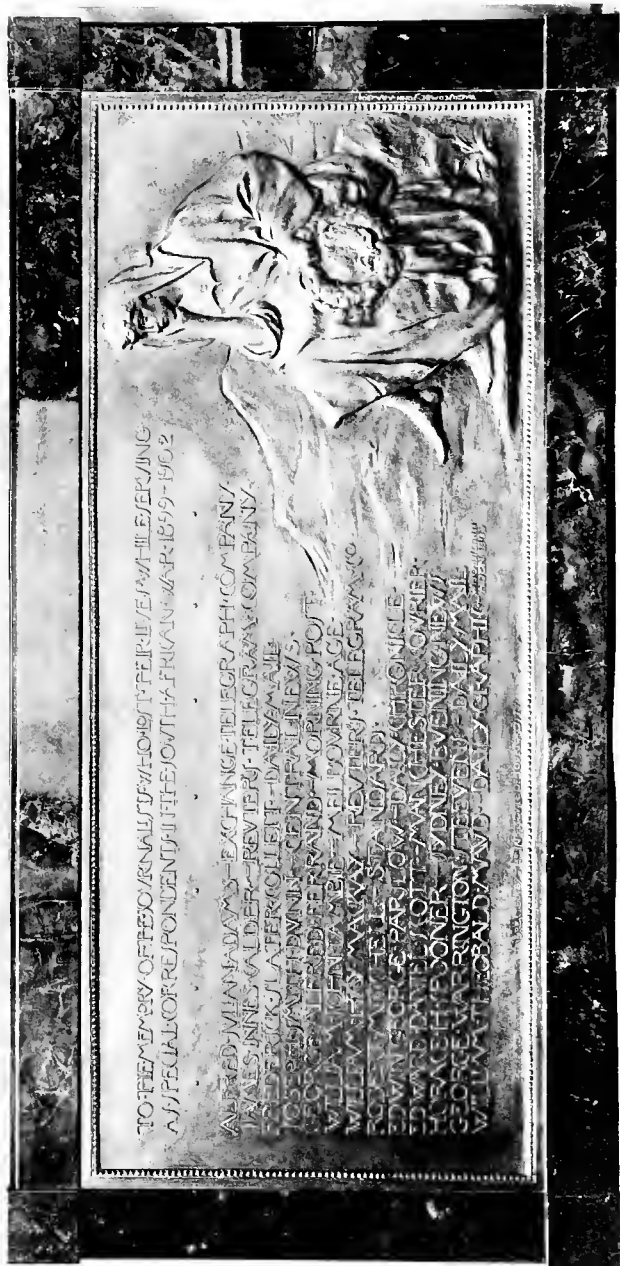 TO·THE·MEMORY·OF·THESE·JOVRNALISTS·WHO·LOST·THEIR·LIVES·WHILE·SERVING
AS·SPECIAL·CORRESPONDENTS·IN·THE·SOVTH·AFRICAN·WAR·1899-1902
ALFRED·JVLIAN·ADAMS–EXCHANGE·TELEGRAPH·COMPANY
JAMES·INNES·CALDER–REVTERS·TELEGRAM·COMPANY
FREDERICK·SLATER·COLLETT–DAILY·MAIL
JOSEPH·SMITH·DVNN–CENTRAL·NEWS·
GEORGE·ALFRED·FERRAND–MORNING·POST
WILLIAM LAMBIE–MELBOVRNE·AGE·
WILLIAM HAY MACKAY–REVTERS·TELEGRAM·CO
MITCHELL–STANDARD
EDWIN·GEORGE·PARSLOW–DAILY·CHRONICLE·
EDWARD·DAVID·SCOTT–MANCHESTER·COVRIER·
HORACE·SPOONER–SYDNEY·EVENING·NEWS
GEORGE·WARRINGTON·STEEVENS–DAILY·MAIL
WILLIAM·THEOBALD·MAVD–DAILY·GRAPHIC